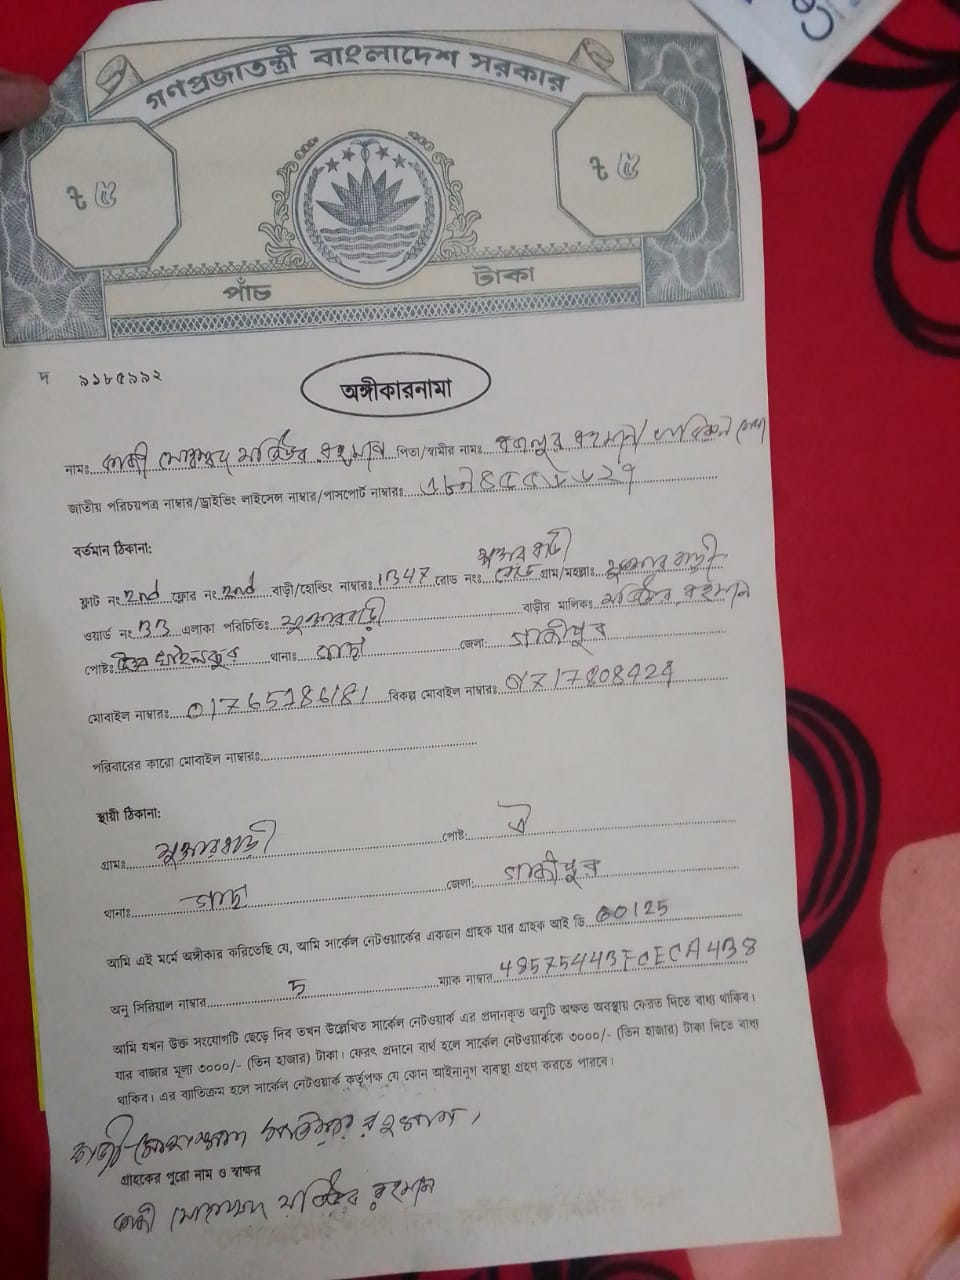 গণপ্রজাতন্ত্রী বাংলাদেশ সরকার
৳ ৫ ৳ ৫
পাঁচ টাকা
দ ৯১৮৫১৯২
অঙ্গীকারনামা
নামঃ কাজী মোহাম্মদ রহমান পিতা/স্বামীর নামঃ রহমান/
জাতীয় পরিচয়পত্র নাম্বার/ড্রাইভিং লাইসেন্স নাম্বার/পাসপোর্ট নাম্বারঃ
বর্তমান ঠিকানা:
ফ্লাট নং 2nd ফ্লোর নং 2nd বাড়ী/হোল্ডিং নাম্বারঃ 1347 রোড নংঃ রোড গ্রাম/মহল্লাঃ
ওয়ার্ড নং 33 এলাকা পরিচিতিঃ বাড়ীর মালিকঃ রহমান
পোষ্টঃ থানাঃ গাছা জেলাঃ গাজীপুর
মোবাইল নাম্বারঃ 01765786181 বিকল্প মোবাইল নাম্বারঃ 01717808424
পরিবারের কারো মোবাইল নাম্বারঃ
স্থায়ী ঠিকানা:
গ্রামঃ পোষ্টঃ ঐ
থানাঃ গাছা জেলাঃ গাজীপুর
আমি এই মর্মে অঙ্গীকার করিতেছি যে, আমি সার্কেল নেটওয়ার্কের একজন গ্রাহক যার গ্রাহক আই ডি 60125
অনু সিরিয়াল নাম্বার 5 ম্যাক নাম্বার 48575443FCECA43B
আমি যখন উক্ত সংযোগটি ছেড়ে দিব তখন উল্লেখিত সার্কেল নেটওয়ার্ক এর প্রদানকৃত অনুটি অক্ষত অবস্থায় ফেরত দিতে বাধ্য থাকিব।
যার বাজার মূল্য ৩০০০/- (তিন হাজার) টাকা। ফেরৎ প্রদানে ব্যর্থ হলে সার্কেল নেটওয়ার্ককে ৩০০০/- (তিন হাজার) টাকা দিতে বাধ্য
থাকিব। এর ব্যতিক্রম হলে সার্কেল নেটওয়ার্ক কর্তৃপক্ষ যে কোন আইনানুগ ব্যবস্থা গ্রহণ করতে পারবে।
কাজী মোহাম্মদ রহমান
গ্রাহকের পুরো নাম ও স্বাক্ষর
কাজী মোহাম্মদ রহমান